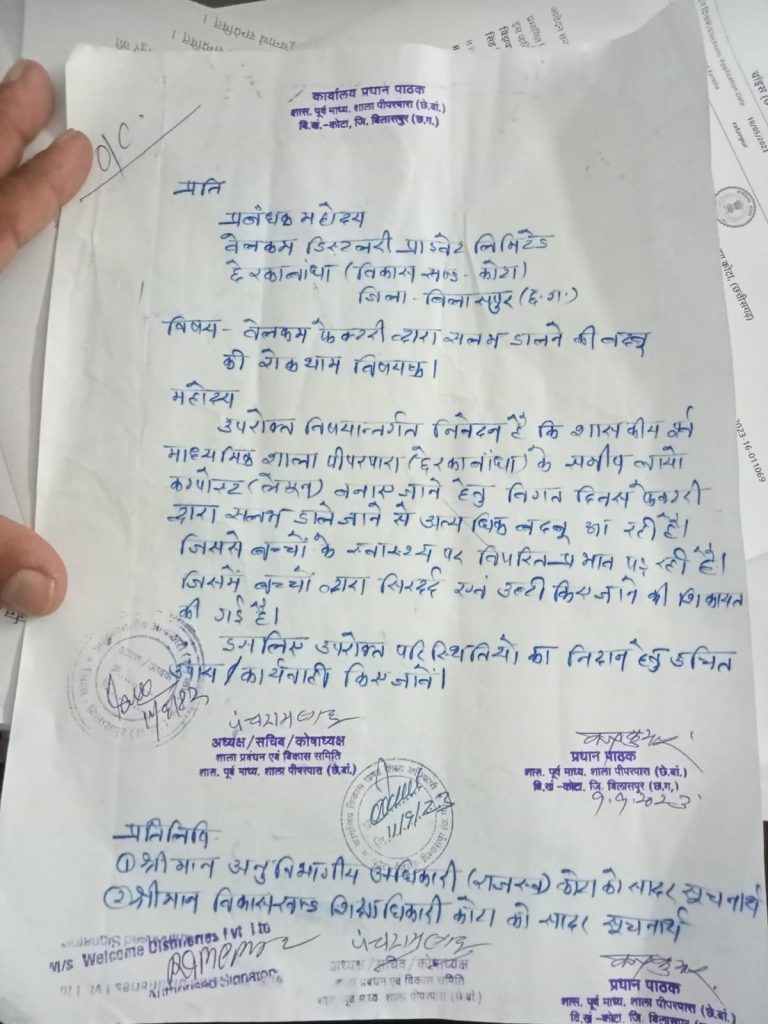 कार्यालय प्रधान पाठक
शास. पूर्व माध्य. शाला पीपरपारा (छे.बां.)
वि.खं.-कोटा, जि. बिलासपुर (छ.ग.)
o/c
प्रति
प्रबंधक महोदय
वेलकम डिस्टलरी प्राइवेट लिमिटेड
छेरकाबांधा (विकास खण्ड - कोटा)
जिला - बिलासपुर (छ.ग.)
विषय - वेलकम फेक्टरी द्वारा मलबा डालने की बदबू
की रोकथाम विषयक।
महोदय
उपरोक्त विषयान्तर्गत निवेदन है कि शासकीय पूर्व
माध्यमिक शाला पीपरपारा (छेरकाबांधा) के समीप बायो
कम्पोस्ट (लेगुन) बनाए जाने हेतु विगत दिवस फेक्टरी
द्वारा डाले जाने से अत्यधिक बदबू आ रही है।
जिससे बच्चों के स्वास्थ्य पर विपरित प्रभाव पड़ रही है।
जिसमें बच्चों द्वारा सिरदर्द एवं उल्टी किए जाने की शिकायत
की गई है।
इसलिए उपरोक्त परिस्थितियो का निदान हेतु उचित
उपाय / कार्यवाही किए जावें।
पंचराम
अध्यक्ष/सचिव/कोषाध्यक्ष
शाला प्रबंधन एवं विकास समिति
शास. पूर्व माध्य. शाला पीपरपारा (छे.बां.)
प्रधान पाठक
शास. पूर्व माध्य. शाला पीपरपारा (छे.बां.)
वि.खं -कोटा, जि. बिलासपुर (छ.ग.)
9.9.2023
11/9/23
प्रतिलिपि
① श्रीमान अनुविभागीय अधिकारी (राजस्व) कोटा को सादर सूचनार्थ
② श्रीमान विकासखण्ड शिक्षाधिकारी कोटा को सादर सूचनार्थ
M/s Welcome Distilleries Pvt Ltd
Authorised Signator
पंचराम
अध्यक्ष/सचिव/कोषाध्यक्ष
शाला प्रबंधन एवं विकास समिति
शास. पूर्व माध्य. शाला पीपरपारा (छे.बां.)
प्रधान पाठक
शास. पूर्व माध्य. शाला पीपरपारा (छे.बां.)
वि.खं -कोटा, जि. बिलासपुर (छ.ग.)
10/05/2023
ratanpur
कोटा, (छत्तीसगढ़)
2023-16-011069